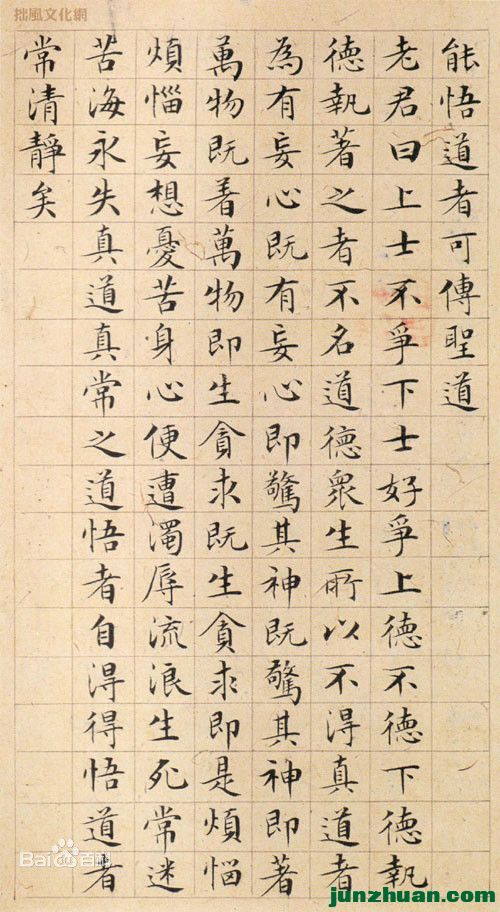 拙風文化網
能悟道者可傳聖道
老君曰上士不爭下士好爭上德不德下德執
德執著之者不名道德眾生所以不得真道者
為有妄心既有妄心即驚其神既驚其神即著
萬物既着萬物即生貪求既生貪求即是煩惱
煩惱妄想憂苦身心便遭濁辱流浪生死常迷
苦海永失真道真常之道悟者自得得悟道者
常清靜矣
Bai百科
junzhuan.com